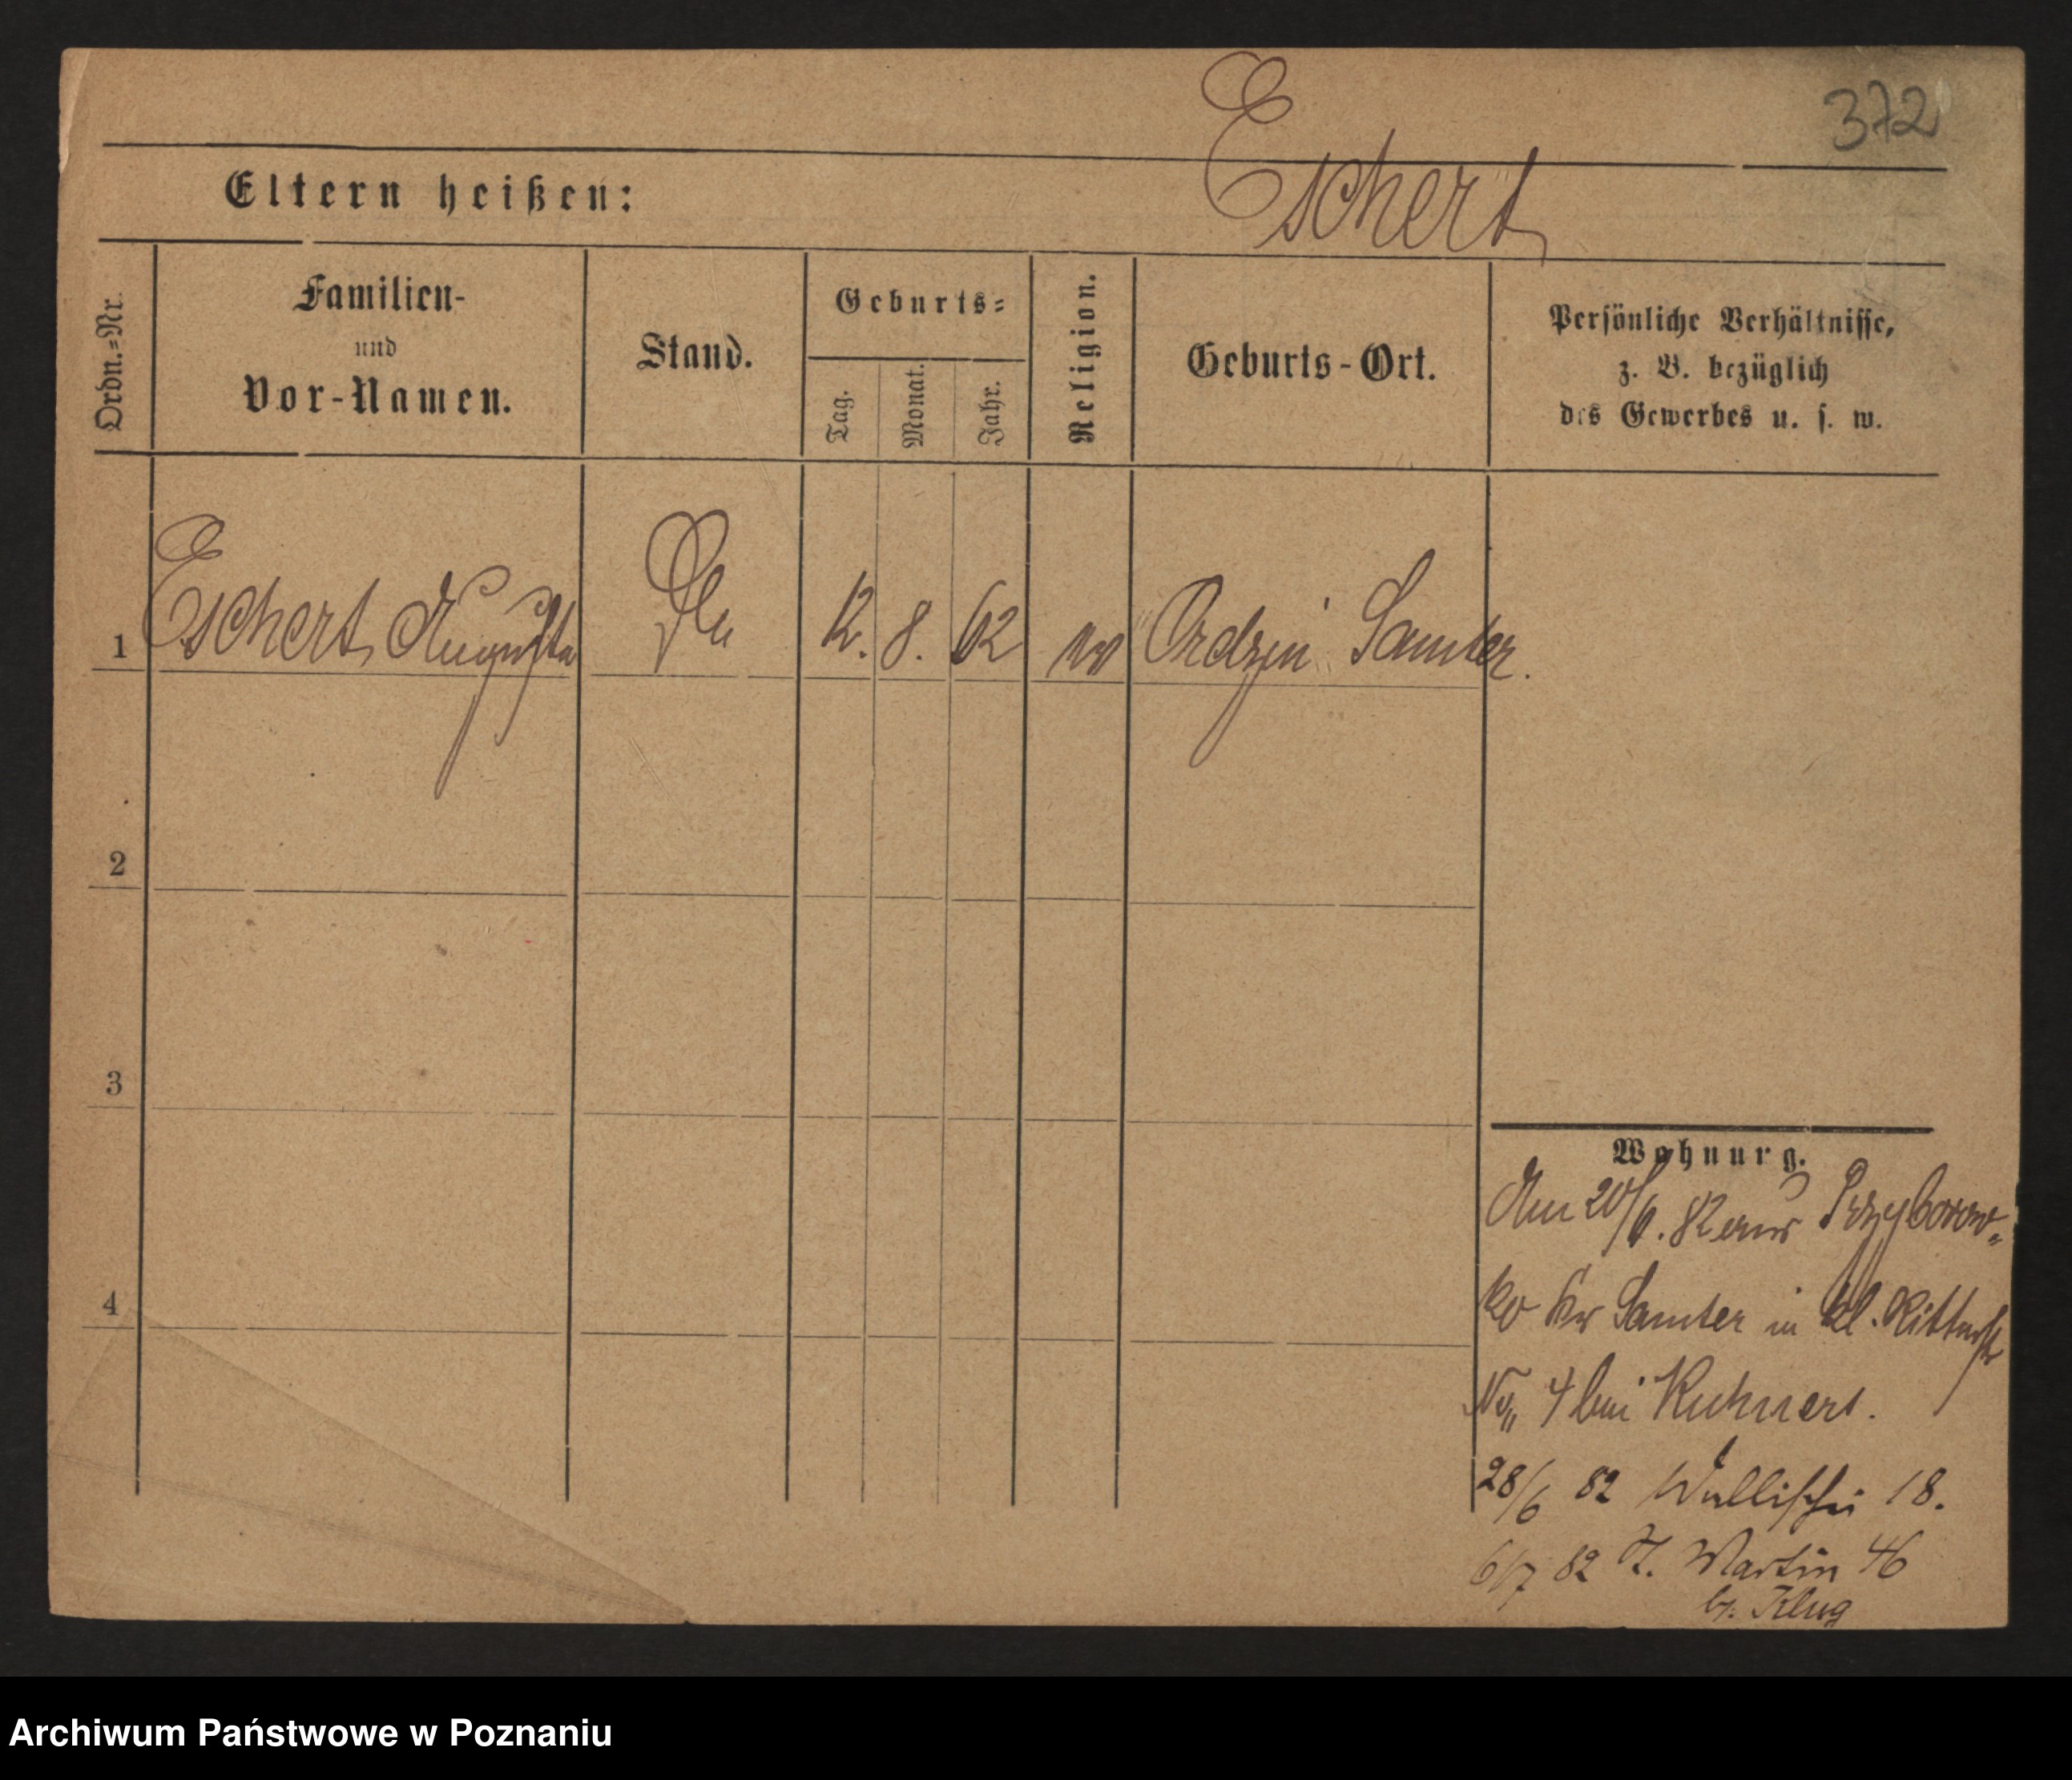 372
Eschert
Eltern heißen:
Ordn.=Nr.
Familien-
und
Vor-Namen.
Stand.
Geburts=
Tag.
Monat.
Jahr.
Religion.
Geburts-Ort.
Persönliche Verhältnisse,
z. B. bezüglich
des Gewerbes u. s. w.
1 Eschert Augusta 12. 8. 62 ev Ordzin Samter.
2
3
4
Wohnung.
Am 20/6. 82 aus Przyborow-
ko Kr Samter in kl. Ritterstr
No 4 bei Kuhnert.
28/6 82 Wallischei 18.
6/7 82 St. Martin 46
b. Klug
Archiwum Państwowe w Poznaniu